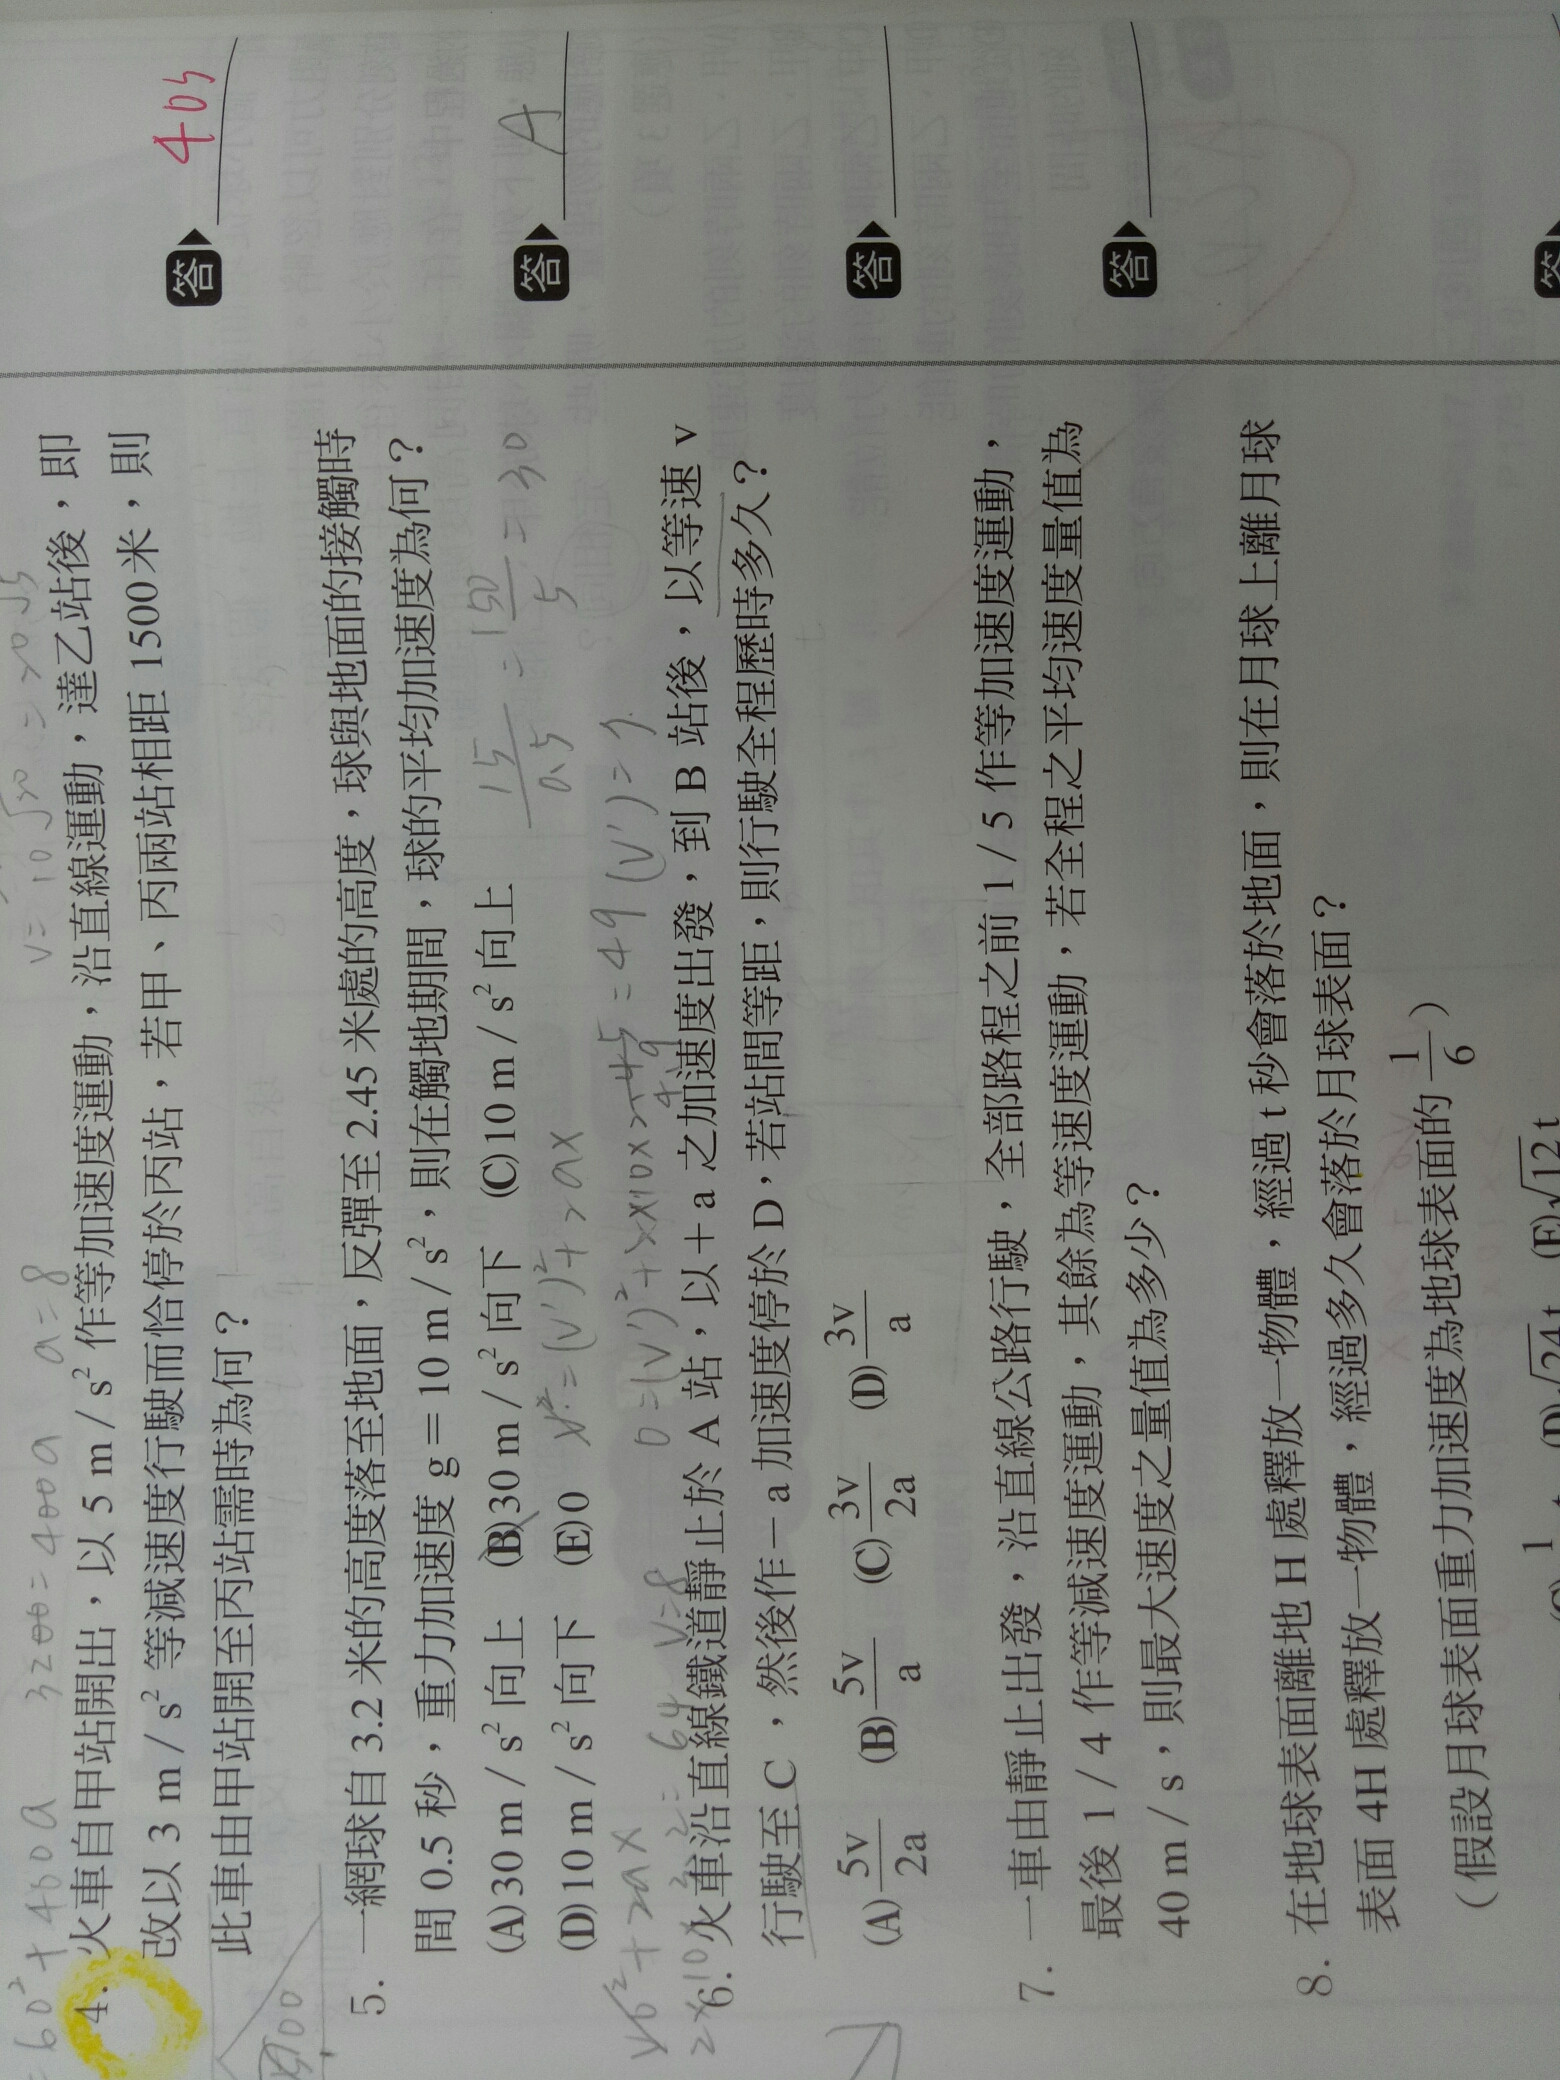 v = 10√20 = 20√5
= 60² + 400a 3200 = 400a a = 8
4. 火車自甲站開出，以 5 m / s² 作等加速度運動，沿直線運動，達乙站後，即
改以 3 m / s² 等減速度行駛而恰停於丙站，若甲、丙兩站相距 1500米，則
此車由甲站開至丙站需時為何？
答 40s
5. 一網球自 3.2 米的高度落至地面，反彈至 2.45 米處的高度，球與地面的接觸時
間 0.5 秒，重力加速度 g = 10 m / s²，則在觸地期間，球的平均加速度為何？
(A)30 m / s² 向上 (B)30 m / s² 向下 (C)10 m / s² 向上
(D)10 m / s² 向下 (E)0
答 A
15/0.5 = 150/5 = 30
v² = (v')² + 2ax
= 64 v = 8
= 49 (v') = 7
6. 火車沿直線鐵道靜止於 A 站，以＋a 之加速度出發，到 B 站後，以等速 v
行駛至 C，然後作－a 加速度停於 D，若站間等距，則行駛全程歷時多久？
(A)5v/2a (B)5v/a (C)3v/2a (D)3v/a
答
7. 一車由靜止出發，沿直線公路行駛，全部路程之前 1 / 5 作等加速度運動，
最後 1 / 4 作等減速度運動，其餘為等速度運動，若全程之平均速度量值為
40 m / s，則最大速度之量值為多少？
答
8. 在地球表面離地 H 處釋放一物體，經過 t 秒會落於地面，則在月球上離月球
表面 4H 處釋放一物體，經過多久會落於月球表面？
（假設月球表面重力加速度為地球表面的 1/6）
(D)√24 t (E)√12 t
答